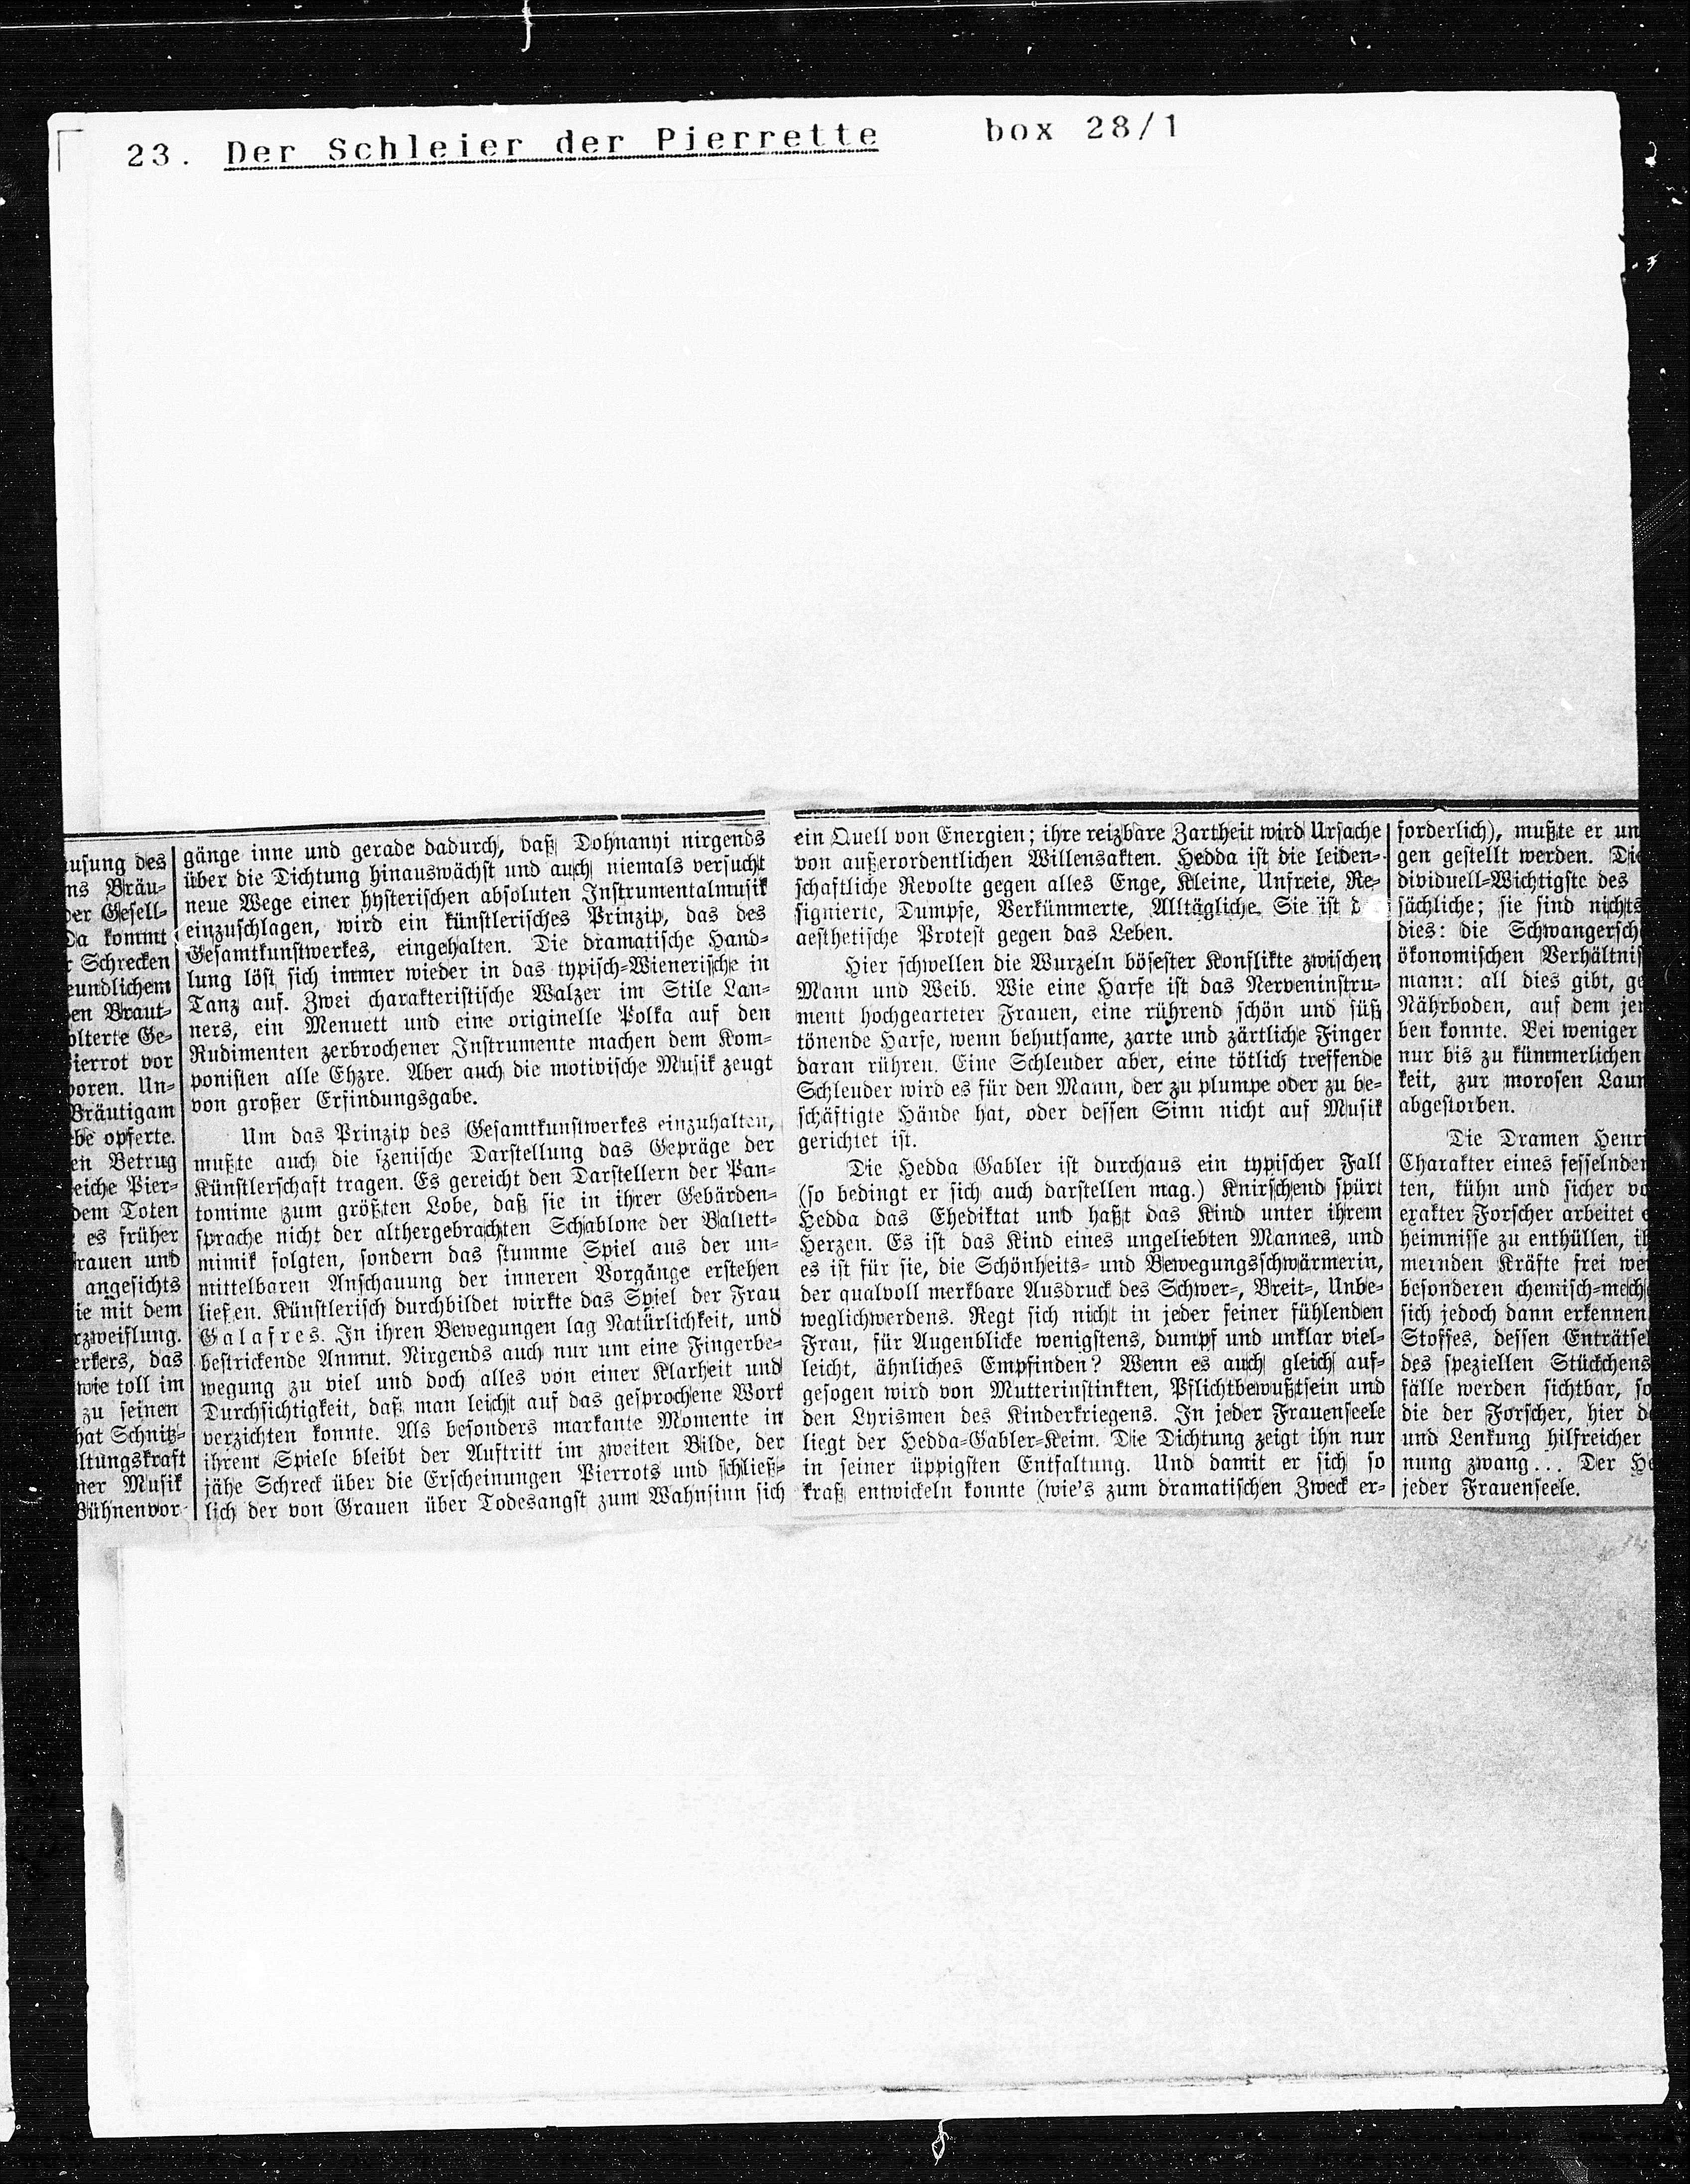 23. Der Schleier der Pierrette box 28/1
usung des
ns Bräu-
er Gesell-
Da kommt
Schrecken
eundlichem
en Braut-
olterte Ge-
ierrot vor
oren. Un-
Bräutigam
be opferte.
en Betrug
eiche Pier-
dem Toten
es früher
rauen und
angesichts
ie mit dem
rzweiflung.
erkers, das
wie toll im
zu seinen
hat Schnitz-
ltungskraft
ner Musik
Bühnenvor-
gänge inne und gerade dadurch, daß Dohnanyi nirgends
über die Dichtung hinauswächst und auch niemals versucht
neue Wege einer hysterischen absoluten Instrumentalmusik
einzuschlagen, wird ein künstlerisches Prinzip, das des
Gesamtkunstwerkes, eingehalten. Die dramatische Hand-
lung löst sich immer wieder in das typisch-Wienerische in
Tanz auf. Zwei charakteristische Walzer im Stile Lan-
ners, ein Menuett und eine originelle Polka auf den
Rudimenten zerbrochener Instrumente machen dem Kom-
ponisten alle Ehzre. Aber auch die motivische Musik zeugt
von großer Erfindungsgabe.
Um das Prinzip des Gesamtkunstwerkes einzuhalten,
mußte auch die szenische Darstellung das Gepräge der
Künstlerschaft tragen. Es gereicht den Darstellern der Pan-
tomime zum größten Lobe, daß sie in ihrer Gebärden-
sprache nicht der althergebrachten Schablone der Ballett-
mimik folgten, sondern das stumme Spiel aus der un-
mittelbaren Anschauung der inneren Vorgänge erstehen
ließen. Künstlerisch durchbildet wirkte das Spiel der Frau
Galafres. In ihren Bewegungen lag Natürlichkeit, und
bestrickende Anmut. Nirgends auch nur um eine Fingerbe-
wegung zu viel und doch alles von einer Klarheit und
Durchsichtigkeit, daß man leicht auf das gesprochene Wort
verzichten konnte. Als besonders markante Momente in
ihrem Spiele bleibt der Auftritt im zweiten Bilde, der
jähe Schreck über die Erscheinungen Pierrots und schließ-
lich der von Grauen über Todesangst zum Wahnsinn sich
ein Quell von Energien; ihre reizbare Zartheit wird Ursache
von außerordentlichen Willensakten. Hedda ist die leiden-
schaftliche Revolte gegen alles Enge, Kleine, Unfreie, Re-
signierte, Dumpfe, Verkümmerte, Alltägliche. Sie ist d
aesthetische Protest gegen das Leben.
Hier schwellen die Wurzeln bösester Konflikte zwischen
Mann und Weib. Wie eine Harfe ist das Nerveninstru-
ment hochgearteter Frauen, eine rührend schön und süß
tönende Harfe, wenn behutsame, zarte und zärtliche Finger
daran rühren. Eine Schleuder aber, eine tötlich treffende
Schleuder wird es für den Mann, der zu plumpe oder zu be-
schäftigte Hände hat, oder dessen Sinn nicht auf Musik
gerichtet ist.
Die Hedda Gabler ist durchaus ein typischer Fall
(so bedingt er sich auch darstellen mag.) Knirschend spürt
Hedda das Ehediktat und haßt das Kind unter ihrem
Herzen. Es ist das Kind eines ungeliebten Mannes, und
es ist für sie, die Schönheits- und Bewegungsschwärmerin,
der qualvoll merkbare Ausdruck des Schwer-, Breit-, Unbe-
weglichwerdens. Regt sich nicht in jeder feiner fühlenden
Frau, für Augenblicke wenigstens, dumpf und unklar viel-
leicht, ähnliches Empfinden? Wenn es auch gleich auf-
gesogen wird von Mutterinstinkten, Pflichtbewußtsein und
den Lyrismen des Kinderkriegens. In jeder Frauenseele
liegt der Hedda-Gabler-Keim. Die Dichtung zeigt ihn nur
in seiner üppigsten Entfaltung. Und damit er sich so
kraß entwickeln konnte (wie's zum dramatischen Zweck er-
forderlich), mußte er un
gen gestellt werden. Die
dividuell-Wichtigste des
sächliche; sie sind nichts
dies: die Schwangersch
ökonomischen Verhältnis
mann: all dies gibt, ge
Nährboden, auf dem jen
ben konnte. Bei weniger
nur bis zu kümmerlichen
keit, zur morosen Laun
abgestorben.
Die Dramen Henri
Charakter eines fesselnden
ten, kühn und sicher vo
exakter Forscher arbeitet e
heimnisse zu enthüllen, ih
mernden Kräfte frei wer
besonderen chemisch-mecha
sich jedoch dann erkennen
Stoffes, dessen Enträtsel
des speziellen Stückchens
fälle werden sichtbar, so
die der Forscher, hier d
und Lenkung hilfreicher
nung zwang... Der He
jeder Frauenseele.